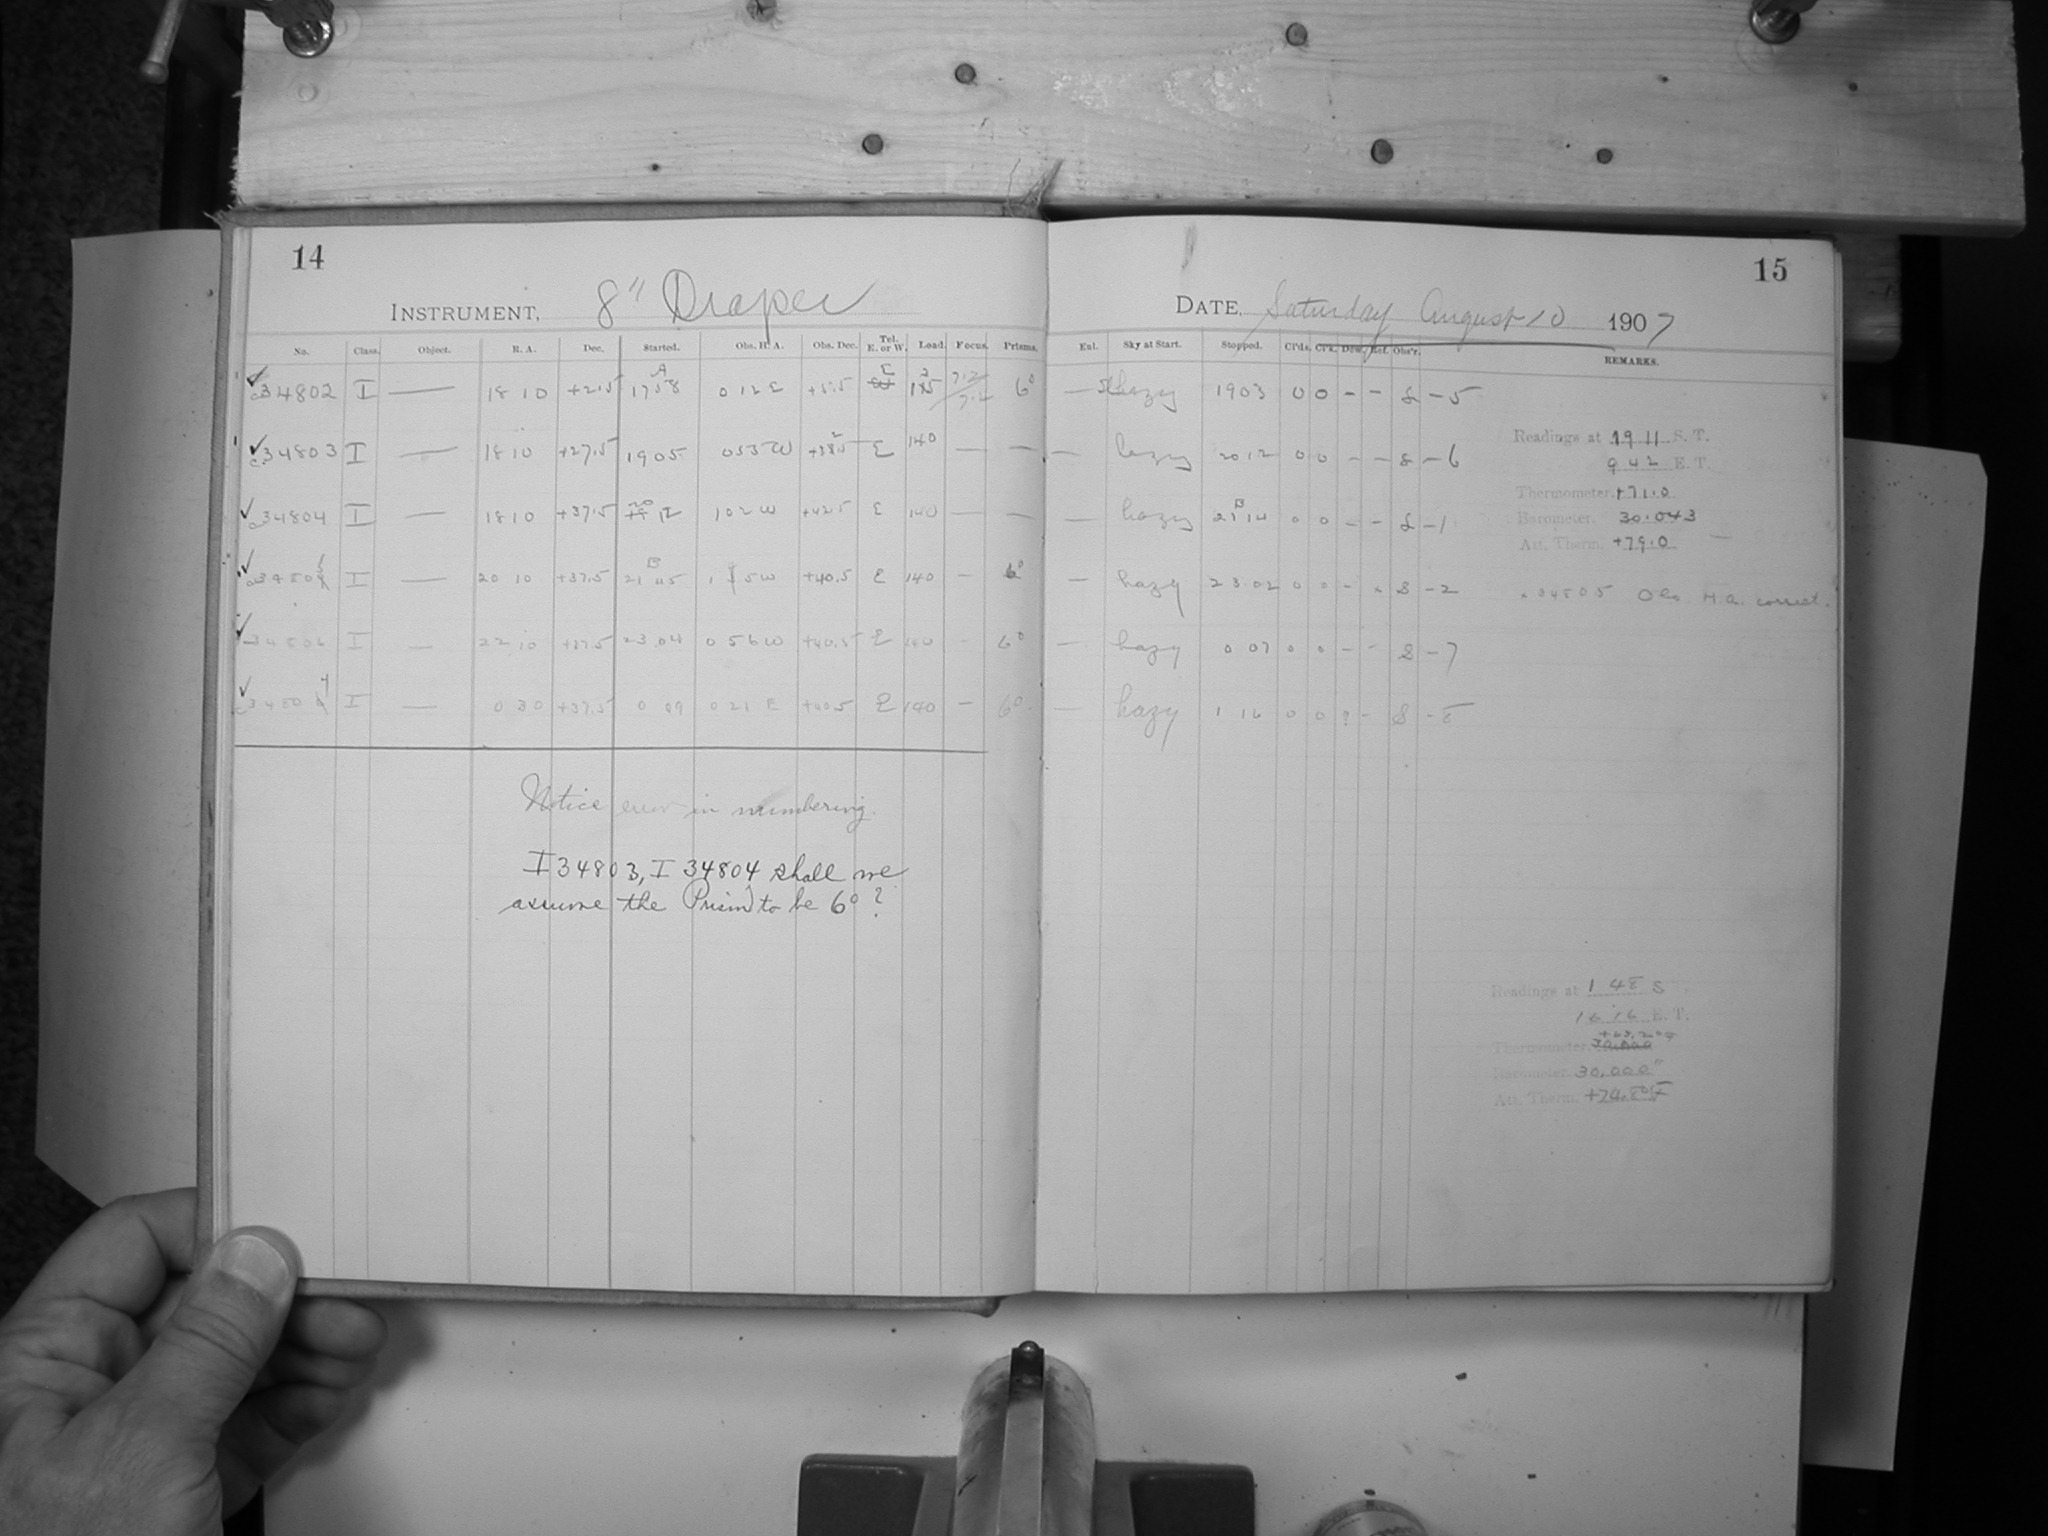 14
INSTRUMENT, 8" Draper
No. Class. Object. R. A. Dec. Started. Obs. H. A. Obs. Dec. Tel. E. or W. Load. Focus. Prisms.
34802 I — 18 10 A 0 12 E E 6°
34803 I — 18 10 +27.5 1905 0 53 W E 140 — —
34804 I — 18 10 +37.5 1 02 W +42.5 E 140 — —
I — 20 10 +37.5 B 21 45 +40.5 E 140 — 6°
34806 I — 22 10 +37.5 23 04 0 56 W +40.5 E 140 — 6°
I — 0 30 +37.5 0 09 0 21 E +40.5 E 140 — 6°
Notice error in numbering.
I 34803, I 34804 shall we
assume the Prism to be 6°?
15
DATE, Saturday August 10 1907
Enl. Sky at Start. Stopped. Cl'ds. Cl'k. Dew. Ref. Obs'r. REMARKS.
— hazy 1903 0 0 - - - 5
— hazy 20 12 0 0 - - 8 - 6
— hazy B 21 14 0 0 - - - 1
— hazy 23 02 0 0 - × 8 - 2
— hazy 0 07 0 0 - - 8 - 7
— hazy 1 16 0 0 ? - 8 - 8
Readings at 19 11 S. T.
9 42 E. T.
Thermometer. +71.0
Barometer. 30.043
Att. Therm. +79.0 —
Obs H.A. correct.
Readings at 1 48 S
16 16 E. T.
Thermometer.
Barometer. 30.000"
Att. Therm.